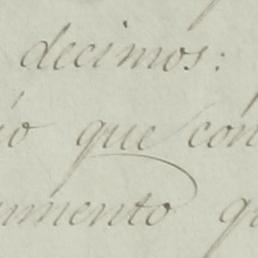 decimos:
io que con
umento q